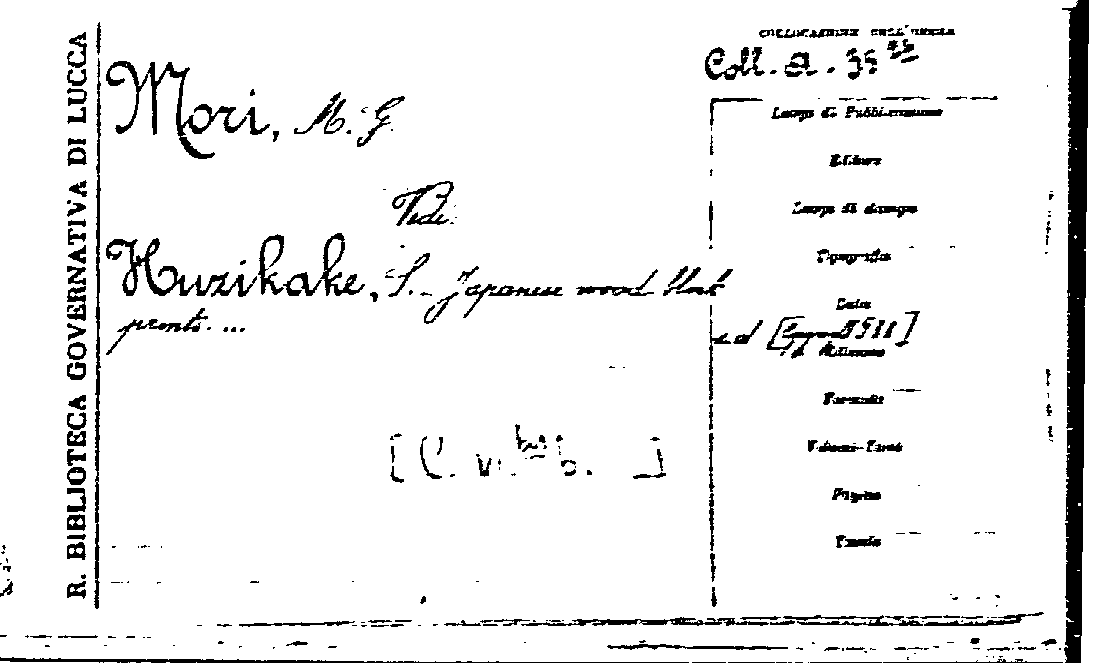 R. BIBLIOTECA GOVERNATIVA DI LUCCA
COLLOCAZIONE DELL'OPERA
Coll. A. 35
Mori, M. G.
Vedi:
Huzikake, S. - Japanese wood block
prints. ...
Luogo di Pubblicazione
Editore
Luogo di stampa
Tipografia
Data
Formato
Pagine
Tavole